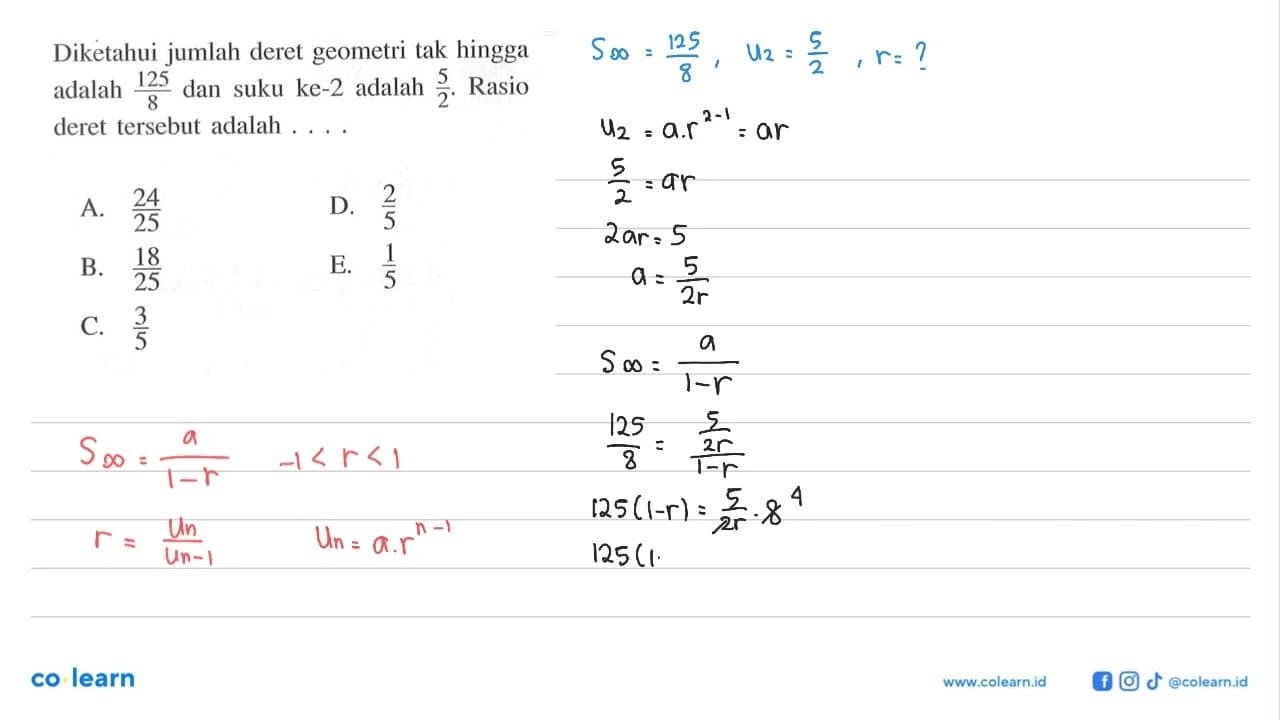 Diketahui jumlah deret geometri tak hingga
adalah 125/8 dan suku ke-2 adalah 5/2. Rasio
deret tersebut adalah . . . .
A. 24/25
B. 18/25
C. 3/5
D. 2/5
E. 1/5
S∞ = a/(1-r) -1 < r < 1
r = Un/Un-1 Un = a.r^(n-1)
S∞ = 125/8 , U2 = 5/2 , r = ?
U2 = a.r^(2-1) = ar
5/2 = ar
2ar = 5
a = 5/2r
S∞ = a/(1-r)
125/8 = (5/2r)/(1-r)
125(1-r) = 5/2r . 8 4
125(1-
co learn
www.colearn.id
@colearn.id